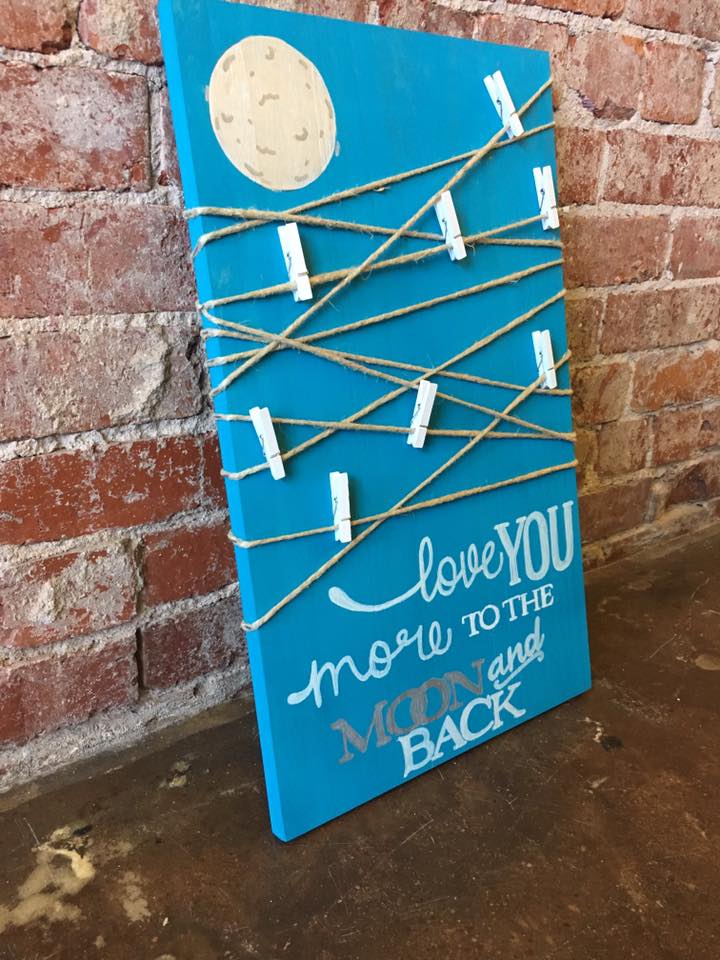 love YOU
more TO THE
MOON and
BACK